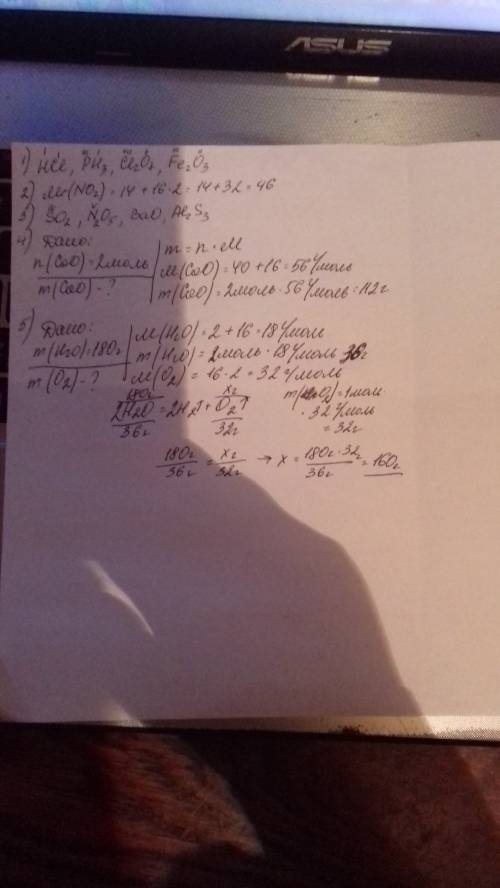 ASUS
1) HCl, PH₃, Cl₂O₇, Fe₂O₃
2) Mr(NO₂) = 14 + 16·2 = 14 + 32 = 46
3) SO₂, N₂O₅, CaO, Al₂S₃
4) Дано:
n(CaO) = 2моль
m(CaO) - ?
m = n · M
M(CaO) = 40 + 16 = 56 г/моль
m(CaO) = 2моль · 56 г/моль = 112г
5) Дано:
m(H₂O) = 180г
m(O₂) - ?
M(H₂O) = 2 + 16 = 18 г/моль
m(H₂O) = 2моль · 18 г/моль 36г
M(O₂) = 16·2 = 32 г/моль
180г xг
2H₂O = 2H₂↑ + O₂↑
36г 32г
m(O₂) = 1моль
· 32 г/моль
= 32г
180г/36г = xг/32г → x = 180г·32г/36г = 160г